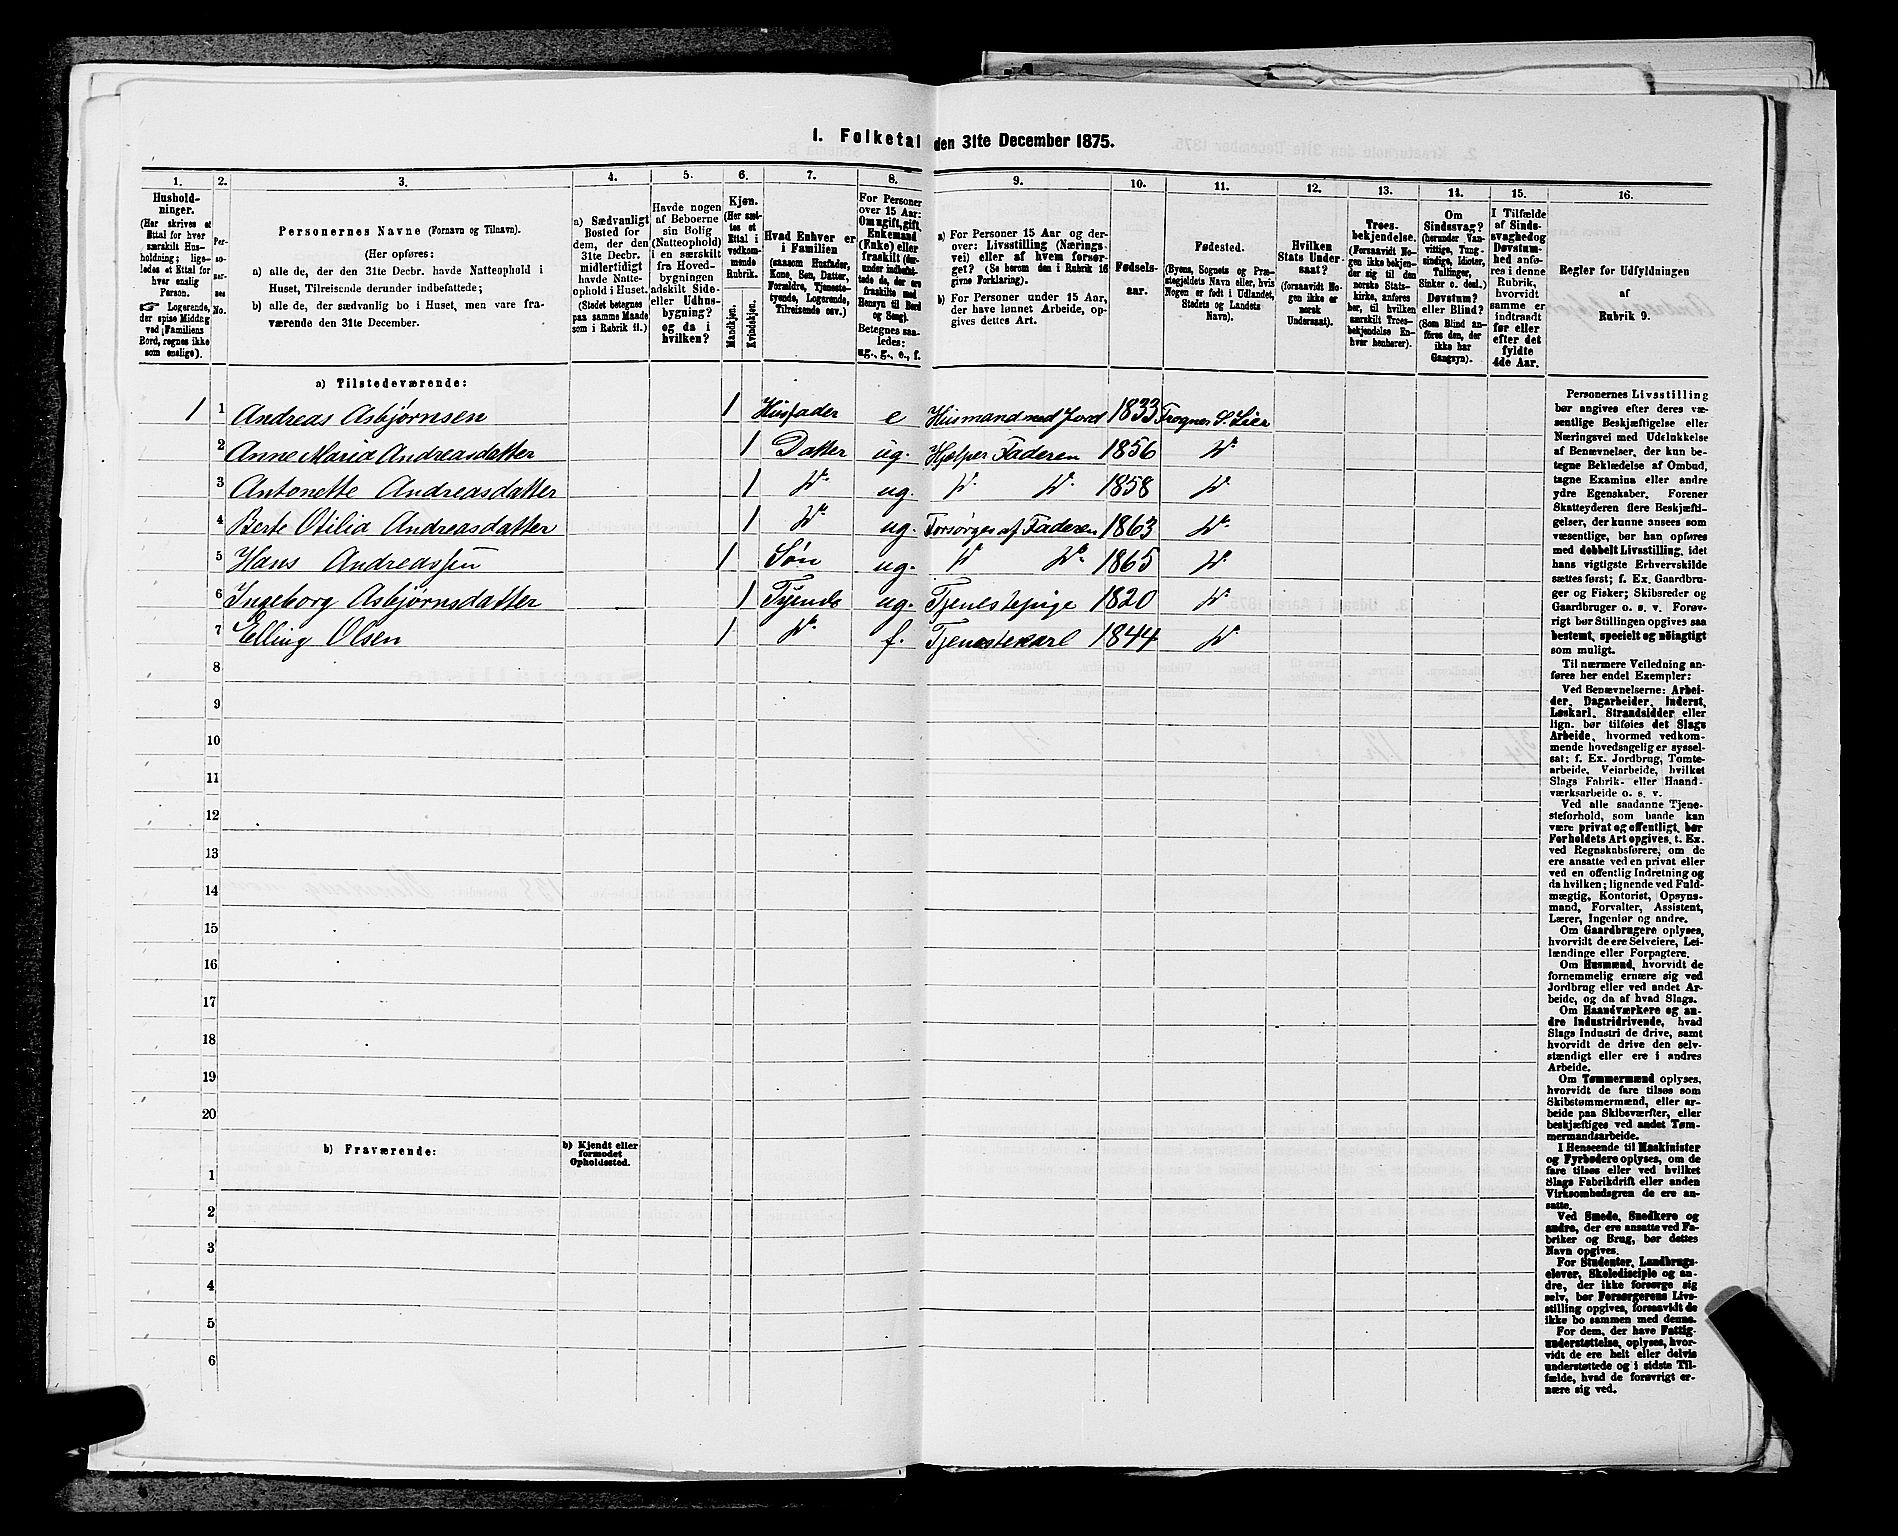 I. Folketal den 31te December 1875.
1. 2. 3. 4. 5. 6. 7. 8. 9. 10. 11. 12. 13. 14. 15. 16.
Hushold-
ninger.
(Her skrives et
Ettal for hver
særskilt Hus-
holdning; lige-
ledes et Ettal for
hver enslig
Person.
☞ Logerende,
der spise Middag
ved Familiens
Bord, regnes ikke
som enslige).
Per-
so-
ner-
nes
No.
Personernes Navne (Fornavn og Tilnavn).
(Her opføres:
a) alle de, der den 31te Decbr. havde Natteophold i
Huset, Tilreisende derunder indbefattede;
b) alle de, der sædvanlig bo i Huset, men vare fra-
værende den 31te December.
a) Sædvanligt
Bosted for
dem, der den
31te Decbr.
midlertidigt
havde Natte-
ophold i Huset.
(Stedet betegnes
paa samme Maade
som i Rubrik 11.)
Havde nogen
af Beboerne
sin Bolig
(Natteophold)
i en særskilt
fra Hoved-
bygningen
adskilt Side-
eller Udhus-
bygning?
og da i
hvilken?
Kjøn.
(Her sæt-
tes et
Ettal i
vedkom-
mende
Rubrik.
Mandkjøn.
Kvindekjøn.
Hvad Enhver er
i Familien
(saasom Husfader,
Kone, Søn, Datter,
Forældre, Tjeneste-
tyende, Logerende,
Tilreisende osv.)
For Personer
over 15 Aar:
Om ugift, gift,
Enkemand
(Enke) eller
fraskilt (der-
under indbefat-
tede de, der ere
fraskilte med
Hensyn til Bord
og Seng).
Betegnes saa-
ledes:
ug., g., e., f.
a) For Personer 15 Aar og der-
over: Livsstilling (Nærings-
vei) eller af hvem forsør-
get? (Se herom den i Rubrik 16
givne Forklaring).
b) For Personer under 15 Aar,
der have lønnet Arbeide, op-
gives dettes Art.
Fødsels-
aar.
Fødested.
(Byens, Sognets og Præ-
stegjeldets Navn eller, hvis
Nogen er født i Udlandet,
Stedets og Landets
Navn).
Hvilken
Stats Under-
saat?
(forsaavidt No-
gen ikke er
norsk
Undersaat).
Troes-
bekjendelse.
(Forsaavidt No-
gen ikke bekjen-
der sig til den
norske Stats-
kirke, anføres
her, til hvilken
særskilt Troes-
bekjendelse En-
hver henhører).
Om
Sindssvag?
(herunder Van-
vittige, Tung-
sindige, Idioter,
Tullinger,
Sinker o. desl.)
Døvstum?
eller Blind?
(Som Blind an-
føres den, der
ikke har
Gangsyn).
I Tilfælde
af Sinds-
svaghed og
Døvstum-
hed anfø-
res i denne
Rubrik,
hvorvidt
samme er
indtraadt
før eller
efter det
fyldte
4de Aar.
Regler for Udfyldningen
af
Rubrik 9.
a) Tilstedeværende:
1 1 Andreas Asbjørnsen 1 Husfader e Husmand med Jord 1833 Frogner S. Lier
2 Anne Maria Andreasdatter 1 Datter ug. Hjælper Faderen 1856 Do
3 Antonette Andreasdatter 1 Do ug. Do Do 1858 Do
4 Berte Otilia Andreasdatter 1 Do ug. Forsørges af Faderen 1863 Do
5 Hans Andreassen 1 Søn ug. Do Do 1865 Do
6 Ingeborg Asbjørnsdatter 1 Tyende ug. Tjenestepige 1820 Do
7 Elling Olsen 1 Do f. Tjenestekarl 1844 Do
8
9
10
11
12
13
14
15
16
17
18
19
20
b) Fraværende:
b) Kjendt eller
formodet
Opholdssted.
1
2
3
4
5
6
Personernes Livsstilling
bør angives efter deres væ-
sentlige Beskjæftigelse eller
Næringsvei med Udelukkelse
af Benævnelser, der kun be-
tegne Beklædelse af Ombud,
tagne Examina eller andre
ydre Egenskaber. Forener
Skatteyderen flere Beskjæfti-
gelser, der kunne ansees som
væsentlige, bør han opføres
med dobbelt Livsstilling, idet
hans vigtigste Erhvervskilde
sættes først; f. Ex. Gaardbru-
ger og Fisker; Skibsreder og
Gaardbruger o. s. v. Forøv-
rigt bør Stillingen opgives saa
bestemt, specielt og nøiagtigt
som muligt.
Til nærmere Veiledning an-
føres her endel Exempler:
Ved Benævnelserne: Arbei-
der, Dagarbeider, Inderst,
Løskarl, Strandsidder eller
lign. bør tilføies det Slags
Arbeide, hvormed vedkom-
mende hovedsagelig er syssel-
sat; f. Ex. Jordbrug, Tomte-
arbeide, Veiarbeide, hvilket
Slags Fabrik- eller Haand-
værksarbeide o. s. v.
Ved alle saadanne Tjene-
steforhold, som baade kan
være privat og offentligt, bør
Forholdets Art opgives, t. Ex.
ved Regnskabsførere, om de
ere ansatte ved en privat eller
ved en offentlig Indretning og
da hvilken; lignende ved Fuld-
mægtig, Kontorist, Opsyns-
mand, Forvalter, Assistent,
Lærer, Ingeniør og andre.
Om Gaardbrugere oplyses,
hvorvidt de ere Selveiere, Lei-
lændinge eller Forpagtere.
Om Husmænd, hvorvidt de
fornemmelig ernære sig ved
Jordbrug eller ved andet Ar-
beide, og da af hvad Slags.
Om Haandværkere og an-
dre Industridrivende, hvad
Slags Industri de drive, samt
hvorvidt de drive den selv-
stændigt eller ere i andres
Arbeide.
Om Tømmermænd oplyses,
hvorvidt de fare tilsøs som
Skibstømmermænd, eller ar-
beide paa Skibsværfter, eller
beskjæftiges ved andet Tøm-
mermandsarbeide.
I Henseende til Maskinister
og Fyrbødere oplyses, om de
fare tilsøs eller ved hvilket
Slags Fabrikdrift eller anden
Virksomhedsgren de ere an-
satte.
Ved Smede, Snedkere og
andre, der ere ansatte ved Fa-
briker og Brug, bør dettes
Navn opgives.
For Studenter, Landbrugs-
elever, Skoledisciple og an-
dre, der ikke forsørge sig
selv, bør Forsørgerens Livs-
stilling opgives, forsaavidt de
ikke bo sammen med denne.
For dem, der have Fattig-
understøttelse, oplyses, hvor-
vidt de ere helt eller delvis
understøttede og i sidste Til-
fælde, hvad de forøvrigt er-
nære sig ved.